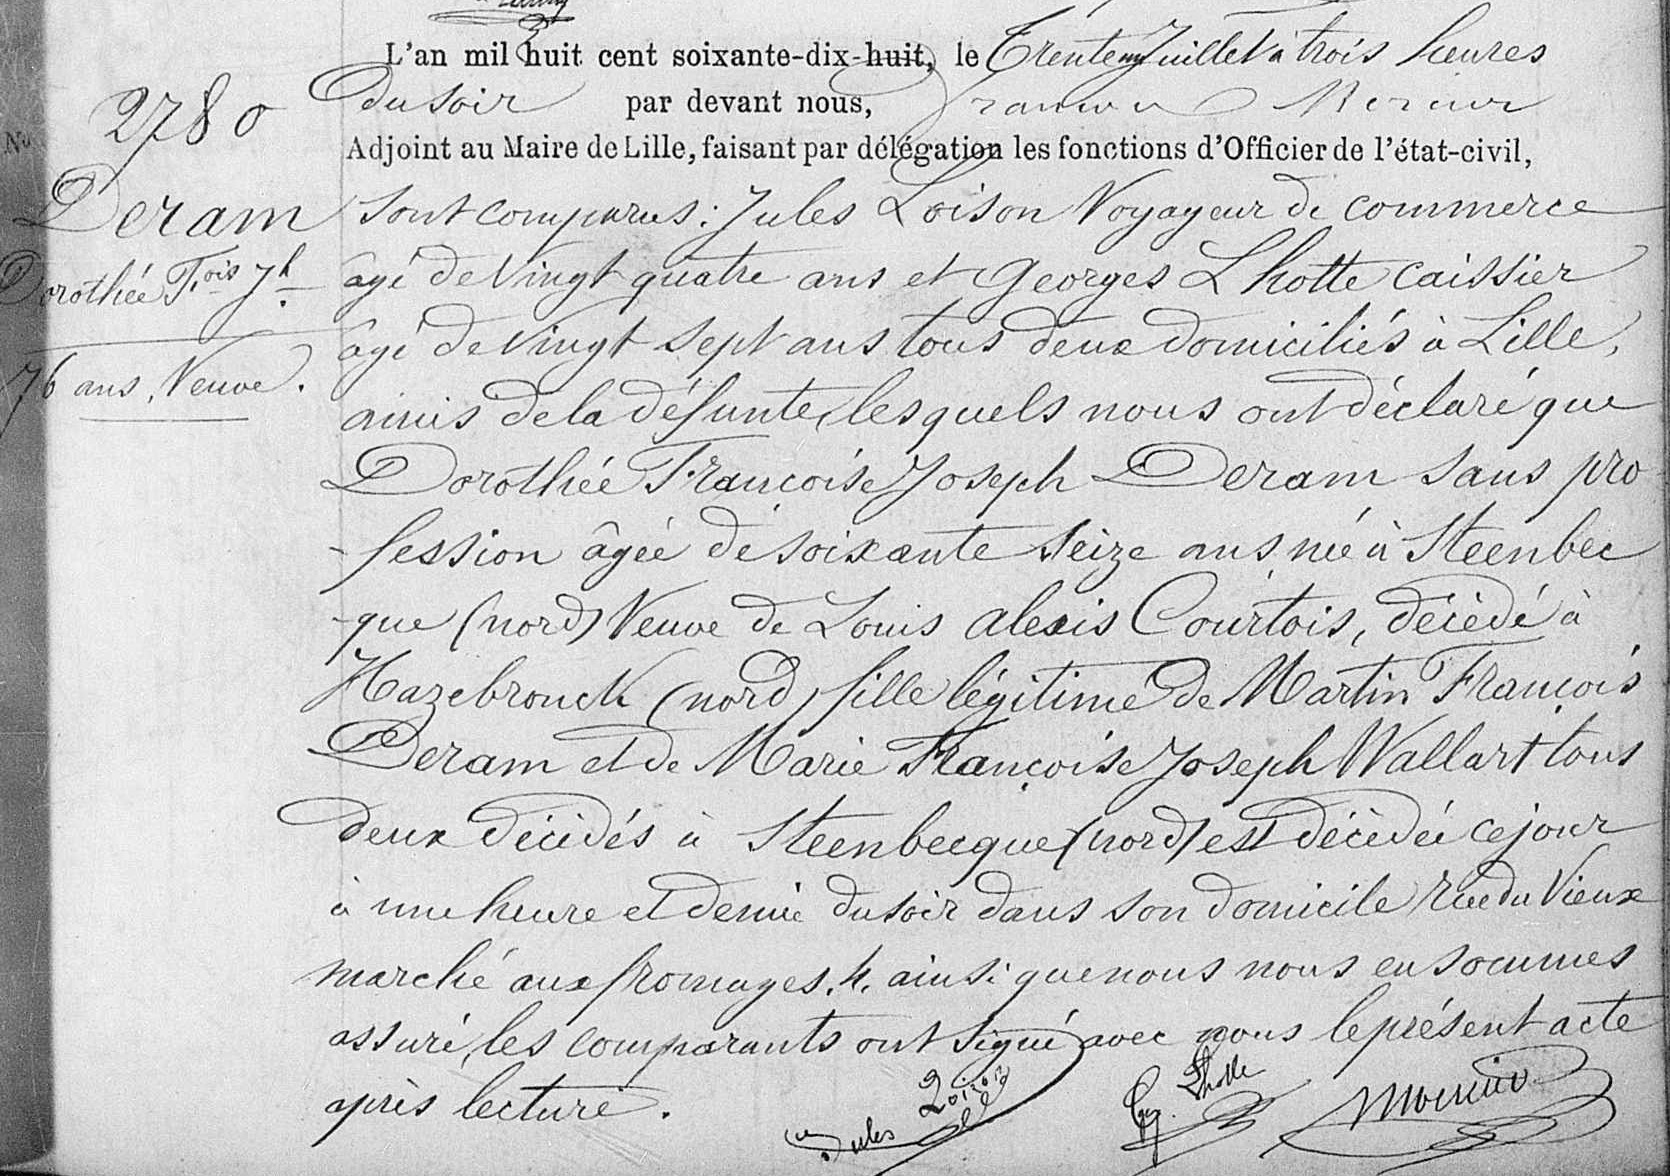 L'an mil huit cent soixante-dix-huit, le Trente un Juillet à trois heures
du soir par devant nous,
Adjoint au Maire de Lille, faisant par délégation les fonctions d'Officier de l'état-civil,
No 2780
Deram
Dorothée F.oise Jh.
76 ans, Veuve.
sont comparus : Jules Loison Voyageur de commerce
âgé de Vingt quatre ans et Georges Lhotte caissier
âgé de Vingt sept ans tous deux domiciliés à Lille,
amis de la défunte, lesquels nous ont déclaré que
Dorothée Françoise Joseph Deram sans pro
-fession âgée de soixante seize ans, née à Steenbec
-que (nord) Veuve de Louis Alexis Courtois, décédé à
Hazebrouck (nord) fille légitime de Martin François
Deram et de Marie Françoise Joseph Wallart tous
deux décédés à Steenbecque (nord) est décédée ce jour
à une heure et demie du soir dans son domicile rue du Vieux
marché aux fromages, 4, ainsi que nous nous en sommes
assuré, les comparants ont signé avec nous le présent acte
après lecture.
Jules Loison
G. Lhotte